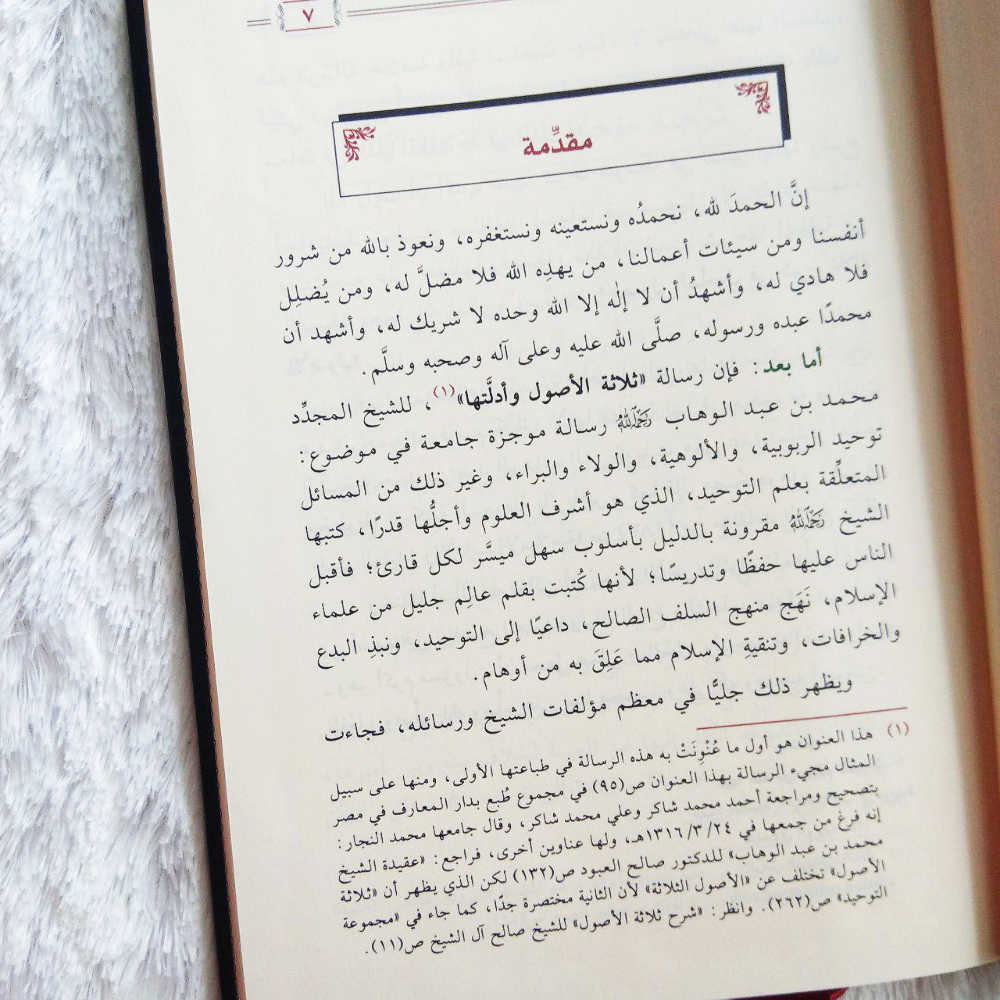 ٧
مقدِّمة
إنَّ الحمدَ لله، نحمدُه ونستعينه ونستغفره، ونعوذ بالله من شرور
أنفسنا ومن سيئات أعمالنا، من يهدِه الله فلا مضلَّ له، ومن يُضلِل
فلا هادي له، وأشهدُ أن لا إلٰه إلا الله وحده لا شريك له، وأشهد أن
محمدًا عبده ورسوله، صلَّى الله عليه وعلى آله وصحبه وسلَّم.
أما بعد: فإن رسالة «ثلاثة الأصول وأدلَّتها»(١)، للشيخ المجدِّد
محمد بن عبد الوهاب رَحِمَهُ اللهُ رسالة موجزة جامعة في موضوع:
توحيد الربوبية، والألوهية، والولاء والبراء، وغير ذلك من المسائل
المتعلِّقة بعلم التوحيد، الذي هو أشرف العلوم وأجلُّها قدرًا، كتبها
الشيخ رَحِمَهُ اللهُ مقرونة بالدليل بأسلوب سهل ميسَّر لكل قارئ؛ فأقبل
الناس عليها حفظًا وتدريسًا؛ لأنها كُتبت بقلم عالِم جليل من علماء
الإسلام، نَهَج منهج السلف الصالح، داعيًا إلى التوحيد، ونبذِ البدع
والخرافات، وتنقيةِ الإسلام مما عَلِقَ به من أوهام.
ويظهر ذلك جليًّا في معظم مؤلفات الشيخ ورسائله، فجاءت
(١) هذا العنوان هو أول ما عُنْوِنَتْ به هذه الرسالة في طباعتها الأولى، ومنها على سبيل
المثال مجيء الرسالة بهذا العنوان ص(٩٥) في مجموع طُبع بدار المعارف في مصر
بتصحيح ومراجعة أحمد محمد شاكر وعلي محمد شاكر، وقال جامعها محمد النجار:
إنه فرغ من جمعها في ١٣١٦/٣/٢٤هـ، ولها عناوين أخرى، فراجع: «عقيدة الشيخ
محمد بن عبد الوهاب» للدكتور صالح العبود ص(١٣٢) لكن الذي يظهر أن «ثلاثة
الأصول» تختلف عن «الأصول الثلاثة» لأن الثانية مختصرة جدًا، كما جاء في «مجموعة
التوحيد» ص(٢٦٢). وانظر: «شرح ثلاثة الأصول» للشيخ صالح آل الشيخ ص(١١).